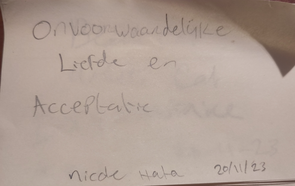 Onvoorwaardelijke
Liefde en
Acceptatie
nicole Hata 20/11/23